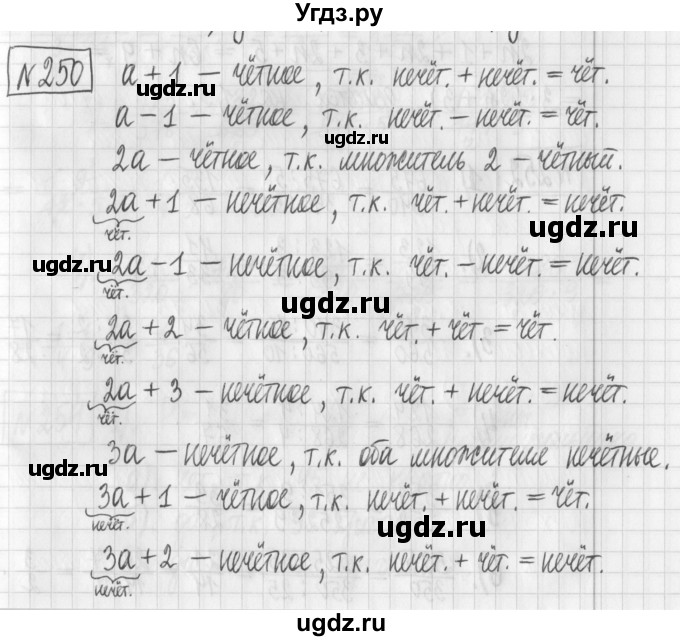 Угдз.ру
№250 a + 1 — чётное, т.к. нечёт. + нечёт. = чёт.
ugdz.ru
a − 1 — чётное, т.к. нечёт. − нечёт. = чёт.
ugdz.ru
2a — чётное, т.к. множитель 2 — чётный.
2a + 1 — нечётное, т.к. чёт. + нечёт. = нечёт.
чёт.
ugdz.ru
2a − 1 — нечётное, т.к. чёт. − нечёт. = нечёт.
ugdz.ru
чёт.
ugdz.ru
2a + 2 — чётное, т.к. чёт. + чёт. = чёт.
чёт.
2a + 3 — нечётное, т.к. чёт. + нечёт. = нечёт.
чёт.
3a — нечётное, т.к. оба множителя нечётные.
ugdz.ru
3a + 1 — чётное, т.к. нечёт. + нечёт. = чёт.
нечёт.
ugdz.ru
3a + 2 — нечётное, т.к. нечёт. + чёт. = нечёт.
нечёт.
ugdz.ru